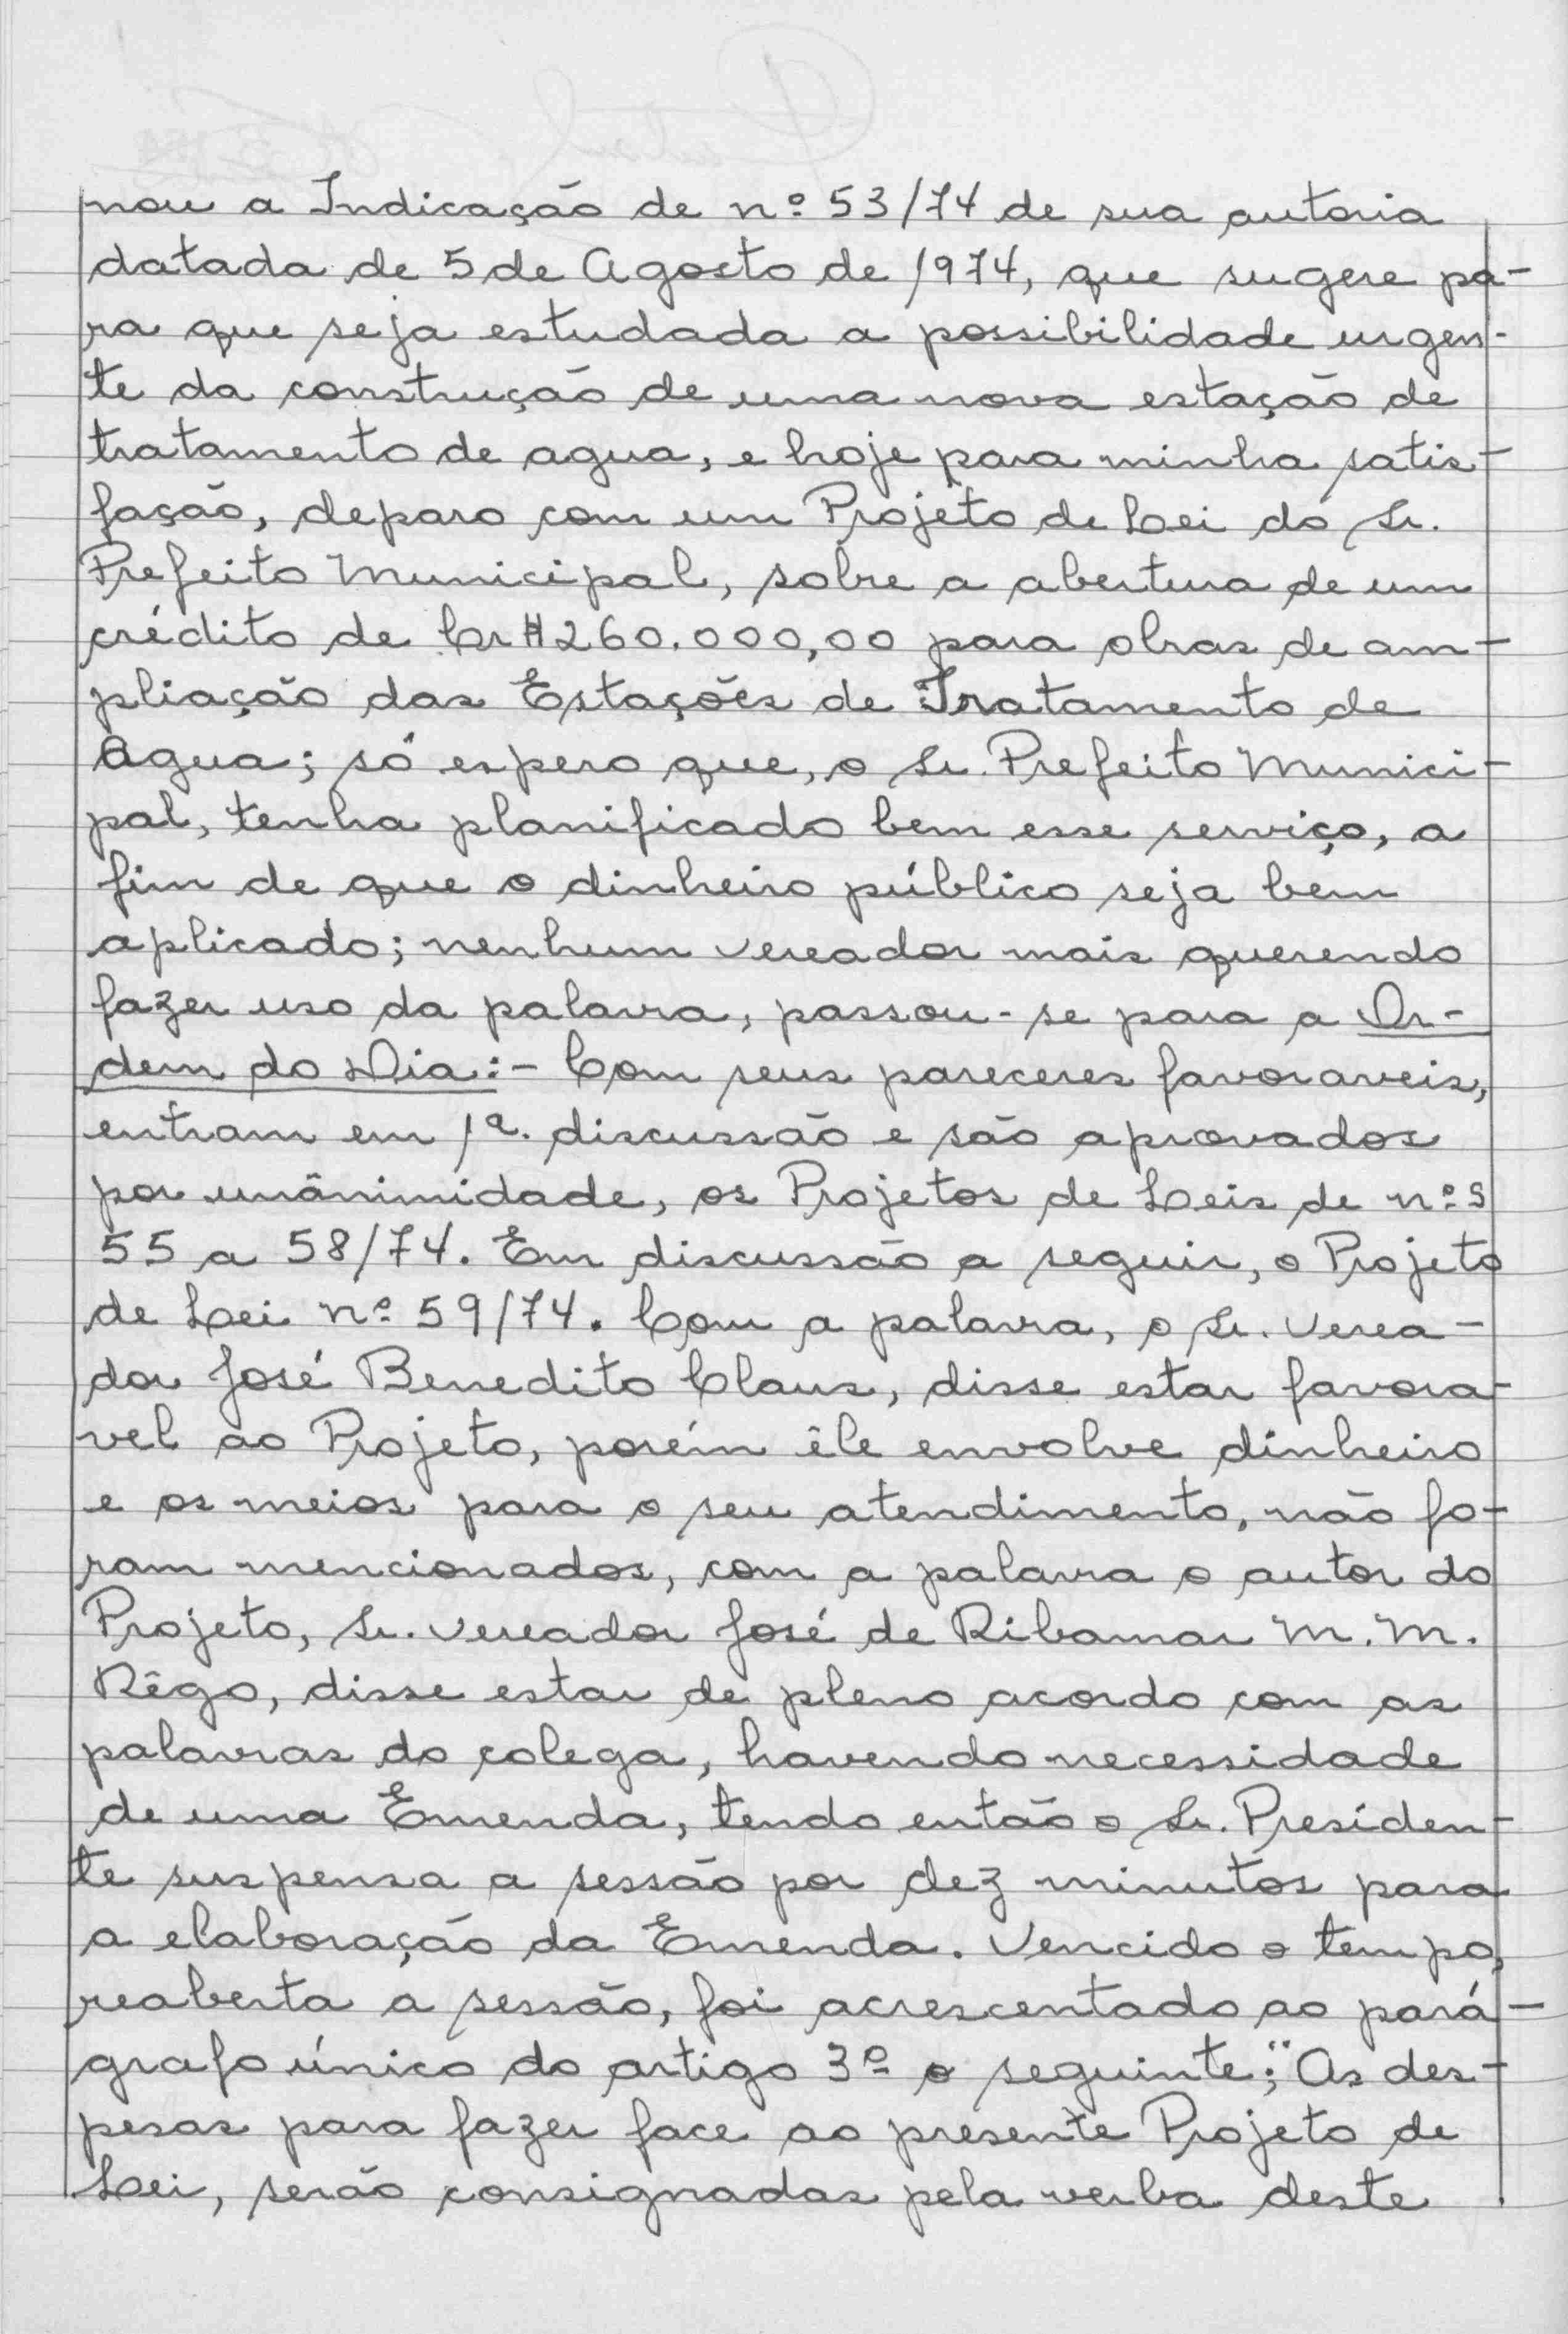 nou a Indicação de nº 53/74 de sua autoria
datada de 5 de Agosto de 1974, que sugere pa-
ra que seja estudada a possibilidade urgen-
te da construção de uma nova estação de
tratamento de agua, e hoje para minha satis-
fação, deparo com um Projeto de Lei do Sr.
Prefeito Municipal, sobre a abertura de um
crédito de Cr$260.000,00 para obras de am-
pliação das Estações de Tratamento de
Agua; só espero que, o Sr. Prefeito Munici-
pal, tenha planificado bem esse serviço, a
fim de que o dinheiro público seja bem
aplicado; nenhum vereador mais querendo
fazer uso da palavra, passou-se para a Or-
dem do Dia:- Com seus pareceres favoraveis,
entram em 1ª. discussão e são aprovados
por unânimidade, os Projetos de Leis de nºs
55 a 58/74. Em discussão a seguir, o Projeto
de Lei nº 59/74. Com a palavra, o Sr. Verea-
dor José Benedito Claus, disse estar favora-
vel ao Projeto, porém êle envolve dinheiro
e os meios para o seu atendimento, não fo-
ram mencionados, com a palavra o autor do
Projeto, Sr. Vereador José de Ribamar M. M.
Rêgo, disse estar de pleno acordo com as
palavras do colega, havendo necessidade
de uma Emenda, tendo então o Sr. Presiden-
te suspensa a sessão por dez minutos para
a elaboração da Emenda. Vencido o tempo,
reaberta a sessão, foi acrescentado ao pará-
grafo único do artigo 3º o seguinte; "As des-
pesas para fazer face ao presente Projeto de
Lei, serão consignadas pela verba deste